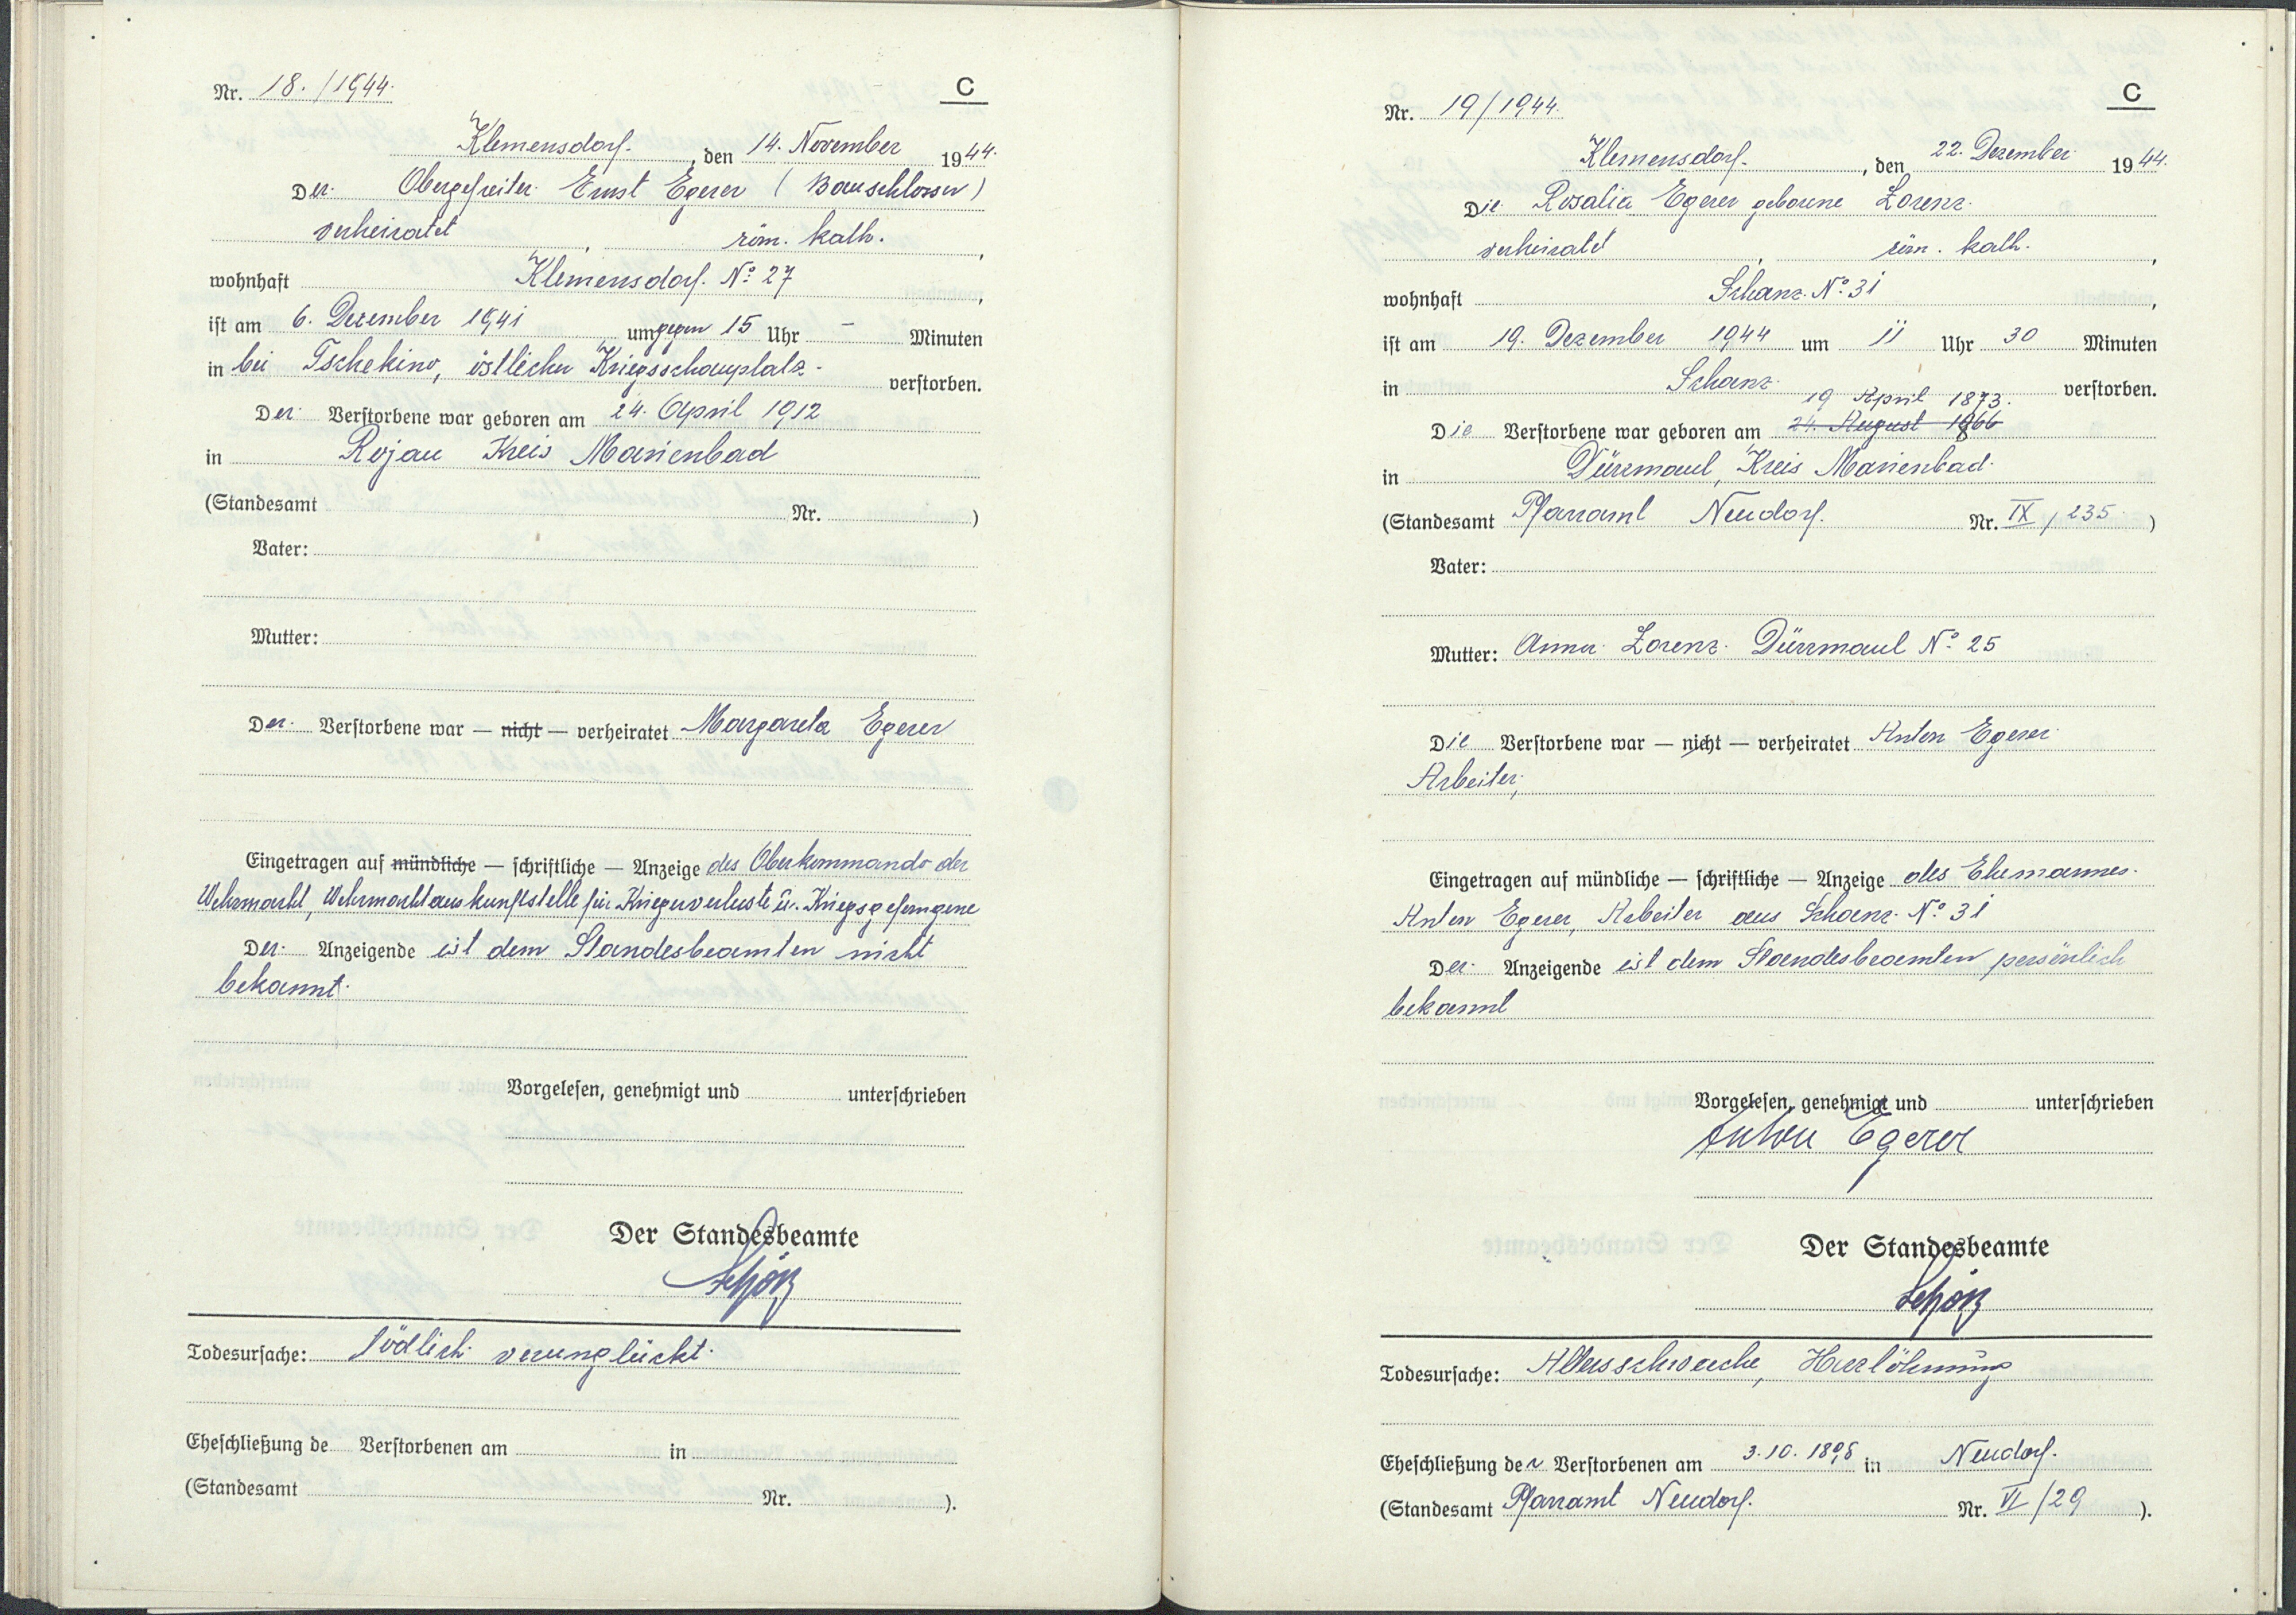 Nr. 18./1944.
C
Klemensdorf., den 14. November 1944.
Der Obergefreiter Ernst Egerer (Bauschlosser)
verheiratet, röm. kath.,
wohnhaft Klemensdorf. No 27,
ist am 6. Dezember 1941 um gegen 15 Uhr - Minuten
in bei Tschekino, östlicher Kriegsschauplatz. verstorben.
Der Verstorbene war geboren am 24. April 1912
in Rojau Kreis Marienbad
(Standesamt Nr. )
Vater:
Mutter:
Der Verstorbene war — nicht — verheiratet Margareta Egerer
Eingetragen auf mündliche — schriftliche — Anzeige des Oberkommando der
Wehrmacht, Wehrmachtauskunftstelle für Kriegerverluste u. Kriegsgefangene
Der Anzeigende ist dem Standesbeamten nicht
bekannt.
Vorgelesen, genehmigt und unterschrieben
Der Standesbeamte
Todesursache: Tödlich verunglückt.
Eheschließung de Verstorbenen am in
(Standesamt Nr. ).
Nr. 19/1944.
C
Klemensdorf., den 22. Dezember 1944.
Die Rosalia Egerer geborene Lorenz
verheiratet, röm. kath.,
wohnhaft Schanz. No 31,
ist am 19. Dezember 1944 um 11 Uhr 30 Minuten
in Schanz. verstorben.
19 April 1873.
Die Verstorbene war geboren am 24. August 1866
in Dürrmaul, Kreis Marienbad.
(Standesamt Pfarramt Neudorf. Nr. IX/235 )
Vater:
Mutter: Anna Lorenz Dürrmaul No 25
Die Verstorbene war — nicht — verheiratet Anton Egerer
Arbeiter,
Eingetragen auf mündliche — schriftliche — Anzeige des Ehemannes.
Anton Egerer, Arbeiter aus Schanz. No 31
Der Anzeigende ist dem Standesbeamten persönlich
bekannt
Vorgelesen, genehmigt und unterschrieben
Anton Egerer
Der Standesbeamte
Todesursache: Altersschwäche, Herzlähmung
Eheschließung der Verstorbenen am 3.10.1898 in Neudorf.
(Standesamt Pfarramt Neudorf. Nr. VI/29 ).